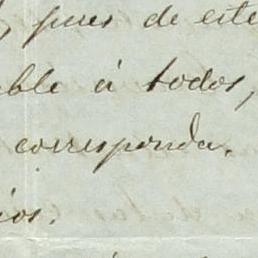 pues de este
ble á todos,
corresponda.
ios.